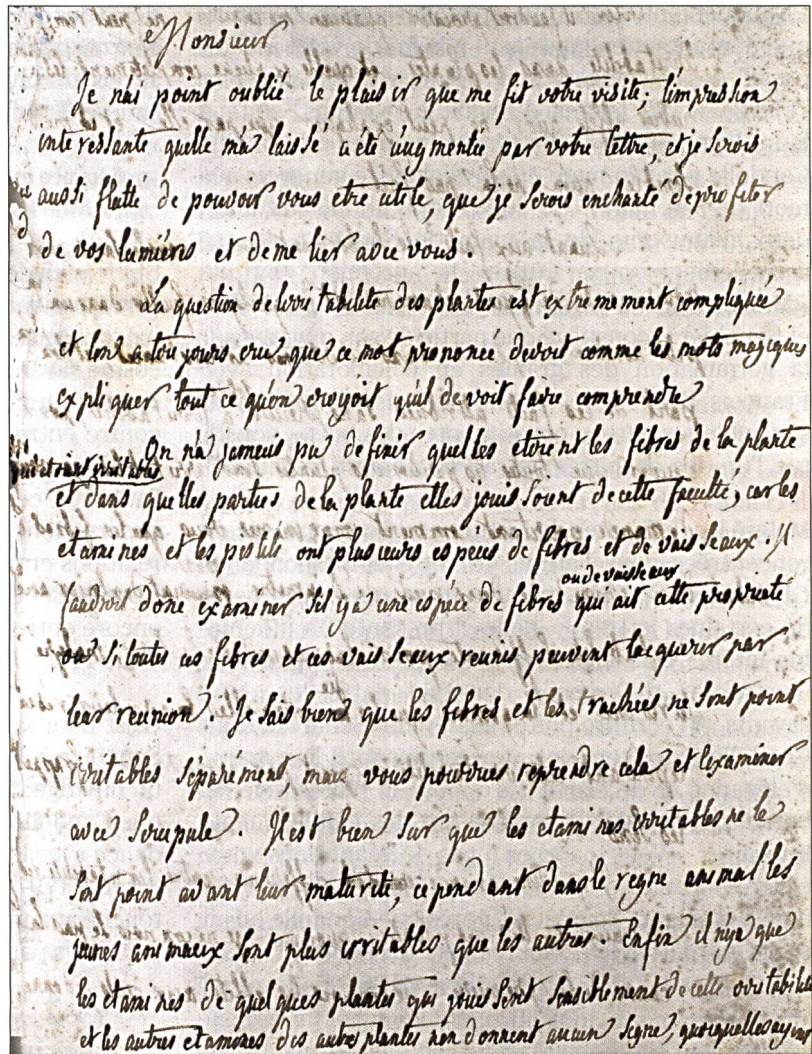 Monsieur
Je n'ai point oublié le plaisir que me fit votre visite; l'impression
interessante quelle m'a laissé a été augmentée par votre lettre, et je serois
aussi flatté de pouvoir vous etre utile, que je serois enchanté de profiter
de vos lumières et de me lier avec vous.
La question de lirritabilité des plantes est extremement compliquée
et lon a toujours cru que ce mot prononcé devoit comme les mots magiques
expliquer tout ce qu'on croyoit qu'il devoit faire comprendre
On n'a jamais pu definir quelles etoient les fibres de la plante
qui etoient irritables
et dans quelles parties de la plante elles jouissoient de cette faculté, car les
etamines et les pistils ont plusieurs espèces de fibres et de vaisseaux. Il
ou de vaisseaux
faudroit donc examiner sil y a une espéce de fibres qui ait cette propriété
ou si toutes ces fibres et ces vaisseaux reunis peuvent lacquerir par
leur reunion. Je sais bien que les fibres et les trachées ne sont point
irritables séparément, mais vous pourrués reprendre cela et lexaminer
avec scrupule. Il est bien sur que les etamines irritables ne le
sont point avant leur maturité, cependant dans le regne animal les
jeunes animaux sont plus irritables que les autres. Enfin il n'ya que
les etamines de quelques plantes qui jouissent sensiblement de cette irritabilité
et les autres etamines des autres plantes n'en donnent aucun signe, quoiquelles ayent